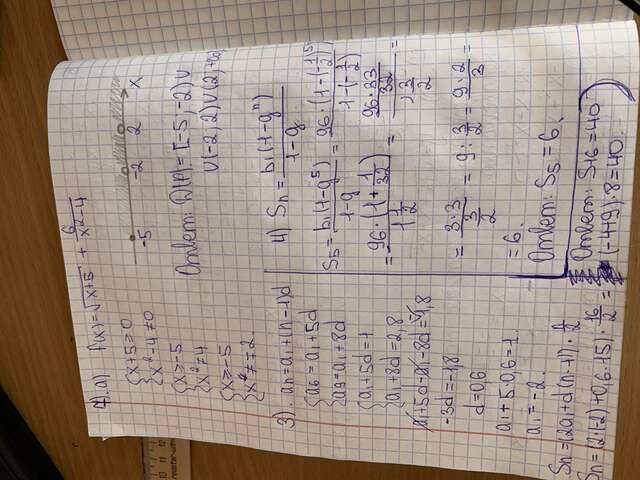 4) a) f(x) = √x+5 + 6/x²-4
{x+5≥0
{x²-4≠0
{x≥-5
{x²≠4
{x≥-5
{x≠±2
-5 -2 2 x
Ответ: D(f) = [-5,-2)∪
∪(-2,2)∪(2,+∞)
3) an=a1+(n-1)d
{a6=a1+5d
{a9=a1+8d
{a1+5d=1
{a1+8d=2,8
a1+5d-a1-8d=1-2,8
-3d=-1,8
d=0,6
a1+5·0,6=1
a1=-2.
Sn=(2a1+d(n-1))·n/2
Sn=(2(-2)+0,6·15)·16/2=
=(-4+9)·8=40.
Ответ: S16=40
4) Sn=b1(1-qⁿ)/1-q
S5=b1(1-q⁵)/1-q=96·(1-(-1/2)⁵)/1+(-1/2)
=96·(1+1/32)/1 1/2=96·33/32/3/2=
=3·3/3/2=9:3/2=9·2/3=
=6.
Ответ: S5=6.